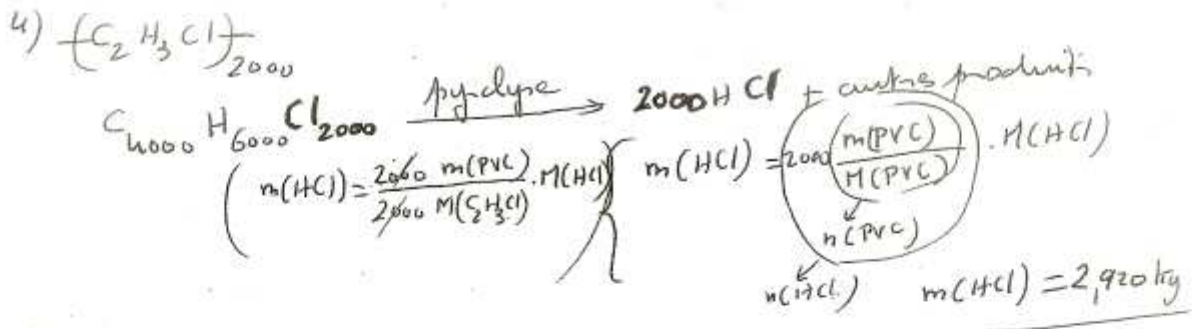 4) -(C₂ H₃ Cl)-₂₀₀₀
C₄₀₀₀ H₆₀₀₀ Cl₂₀₀₀ pyrolyse → 2000 H Cl + autres produits
( m(HCl) = 2000 m(PVC) / 2000 M(C₂H₃Cl) . M(HCl) ) m(HCl) = 2000 ( m(PVC) / M(PVC) ) . M(HCl)
n(PVC)
n(HCl) m(HCl) = 2,920 kg